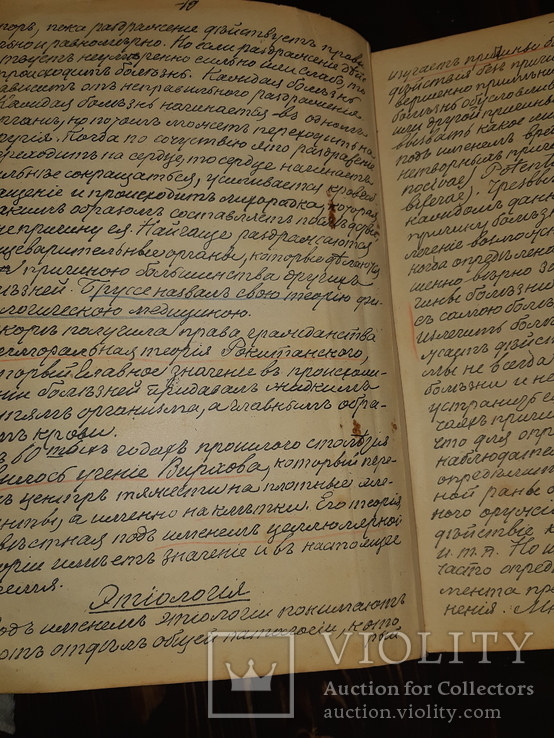 10
поръ, пока раздраженіе дѣйствуетъ прави
льно и равномѣрно. Но если раздраженіе дѣй
ствуетъ неумѣренно сильно или слабо, то
происходитъ болѣзнь. Каждая болѣзнь
зависитъ отъ неправильнаго раздраженія.
Каждая болѣзнь начинается въ одномъ
органѣ, но потомъ можетъ переходить на
другія. Когда по сочувствію это раздраженіе
переходитъ на сердце, то сердце начинаетъ
сильнѣе сокращаться, усиливается кровооб
ращеніе и происходитъ лихорадка, которая
такимъ образомъ составляетъ послѣдствіе
не причину ея. Найчаще раздражаются
пищеварительные органы, которые
причиною большинства другихъ
болѣзней. Бруссе назвалъ свою теорію фи-
зіологическою медициною.
Вскорѣ получила права гражданства
гуморальная теорія Рокитанскаго,
который главное значеніе въ происхож
деніи болѣзней придавалъ жидкимъ
частямъ организма, а главнымъ обра-
зомъ крови.
Въ 60тыхъ годахъ прошлого столѣтія
явилось ученіе Вирхова, который пере-
несъ центръ тяжести на плотные эле-
менты, а именно на клѣтки. Его теорія
извѣстная подъ именемъ целлюлярной
теоріи имѣетъ значеніе и въ настоящее
время.
Этіологія
Подъ именемъ этіологіи понимаютъ
тотъ отдѣлъ общей патологіи, кото
рый
изучаетъ причины б
дѣйствія безъ причи
вершенно правильн
болѣзнь обусловлив
или другой причин
вызвать какое
подъ именемъ
нетворныхъ причи
nocivae) Potent
biferae). Чрезвыч
каждомъ дан
причину болѣз
леченіе возможно
когда опредѣле
шенно вѣрно за
чины болѣзни
съ самою болѣз
излечить болѣ
мы не всегда
болѣзни и не
устранить е
что для опр
наблюдател
опредѣлить
ной раны б
ного оруж
дѣйствіе к
и.т.д. Но и
часто опред
мента пр
ненія.
VIOLITY
Auction for Collectors
auction.violity.com